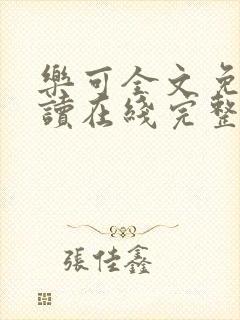 樂可全文免
讀在綫完整
張佳鑫